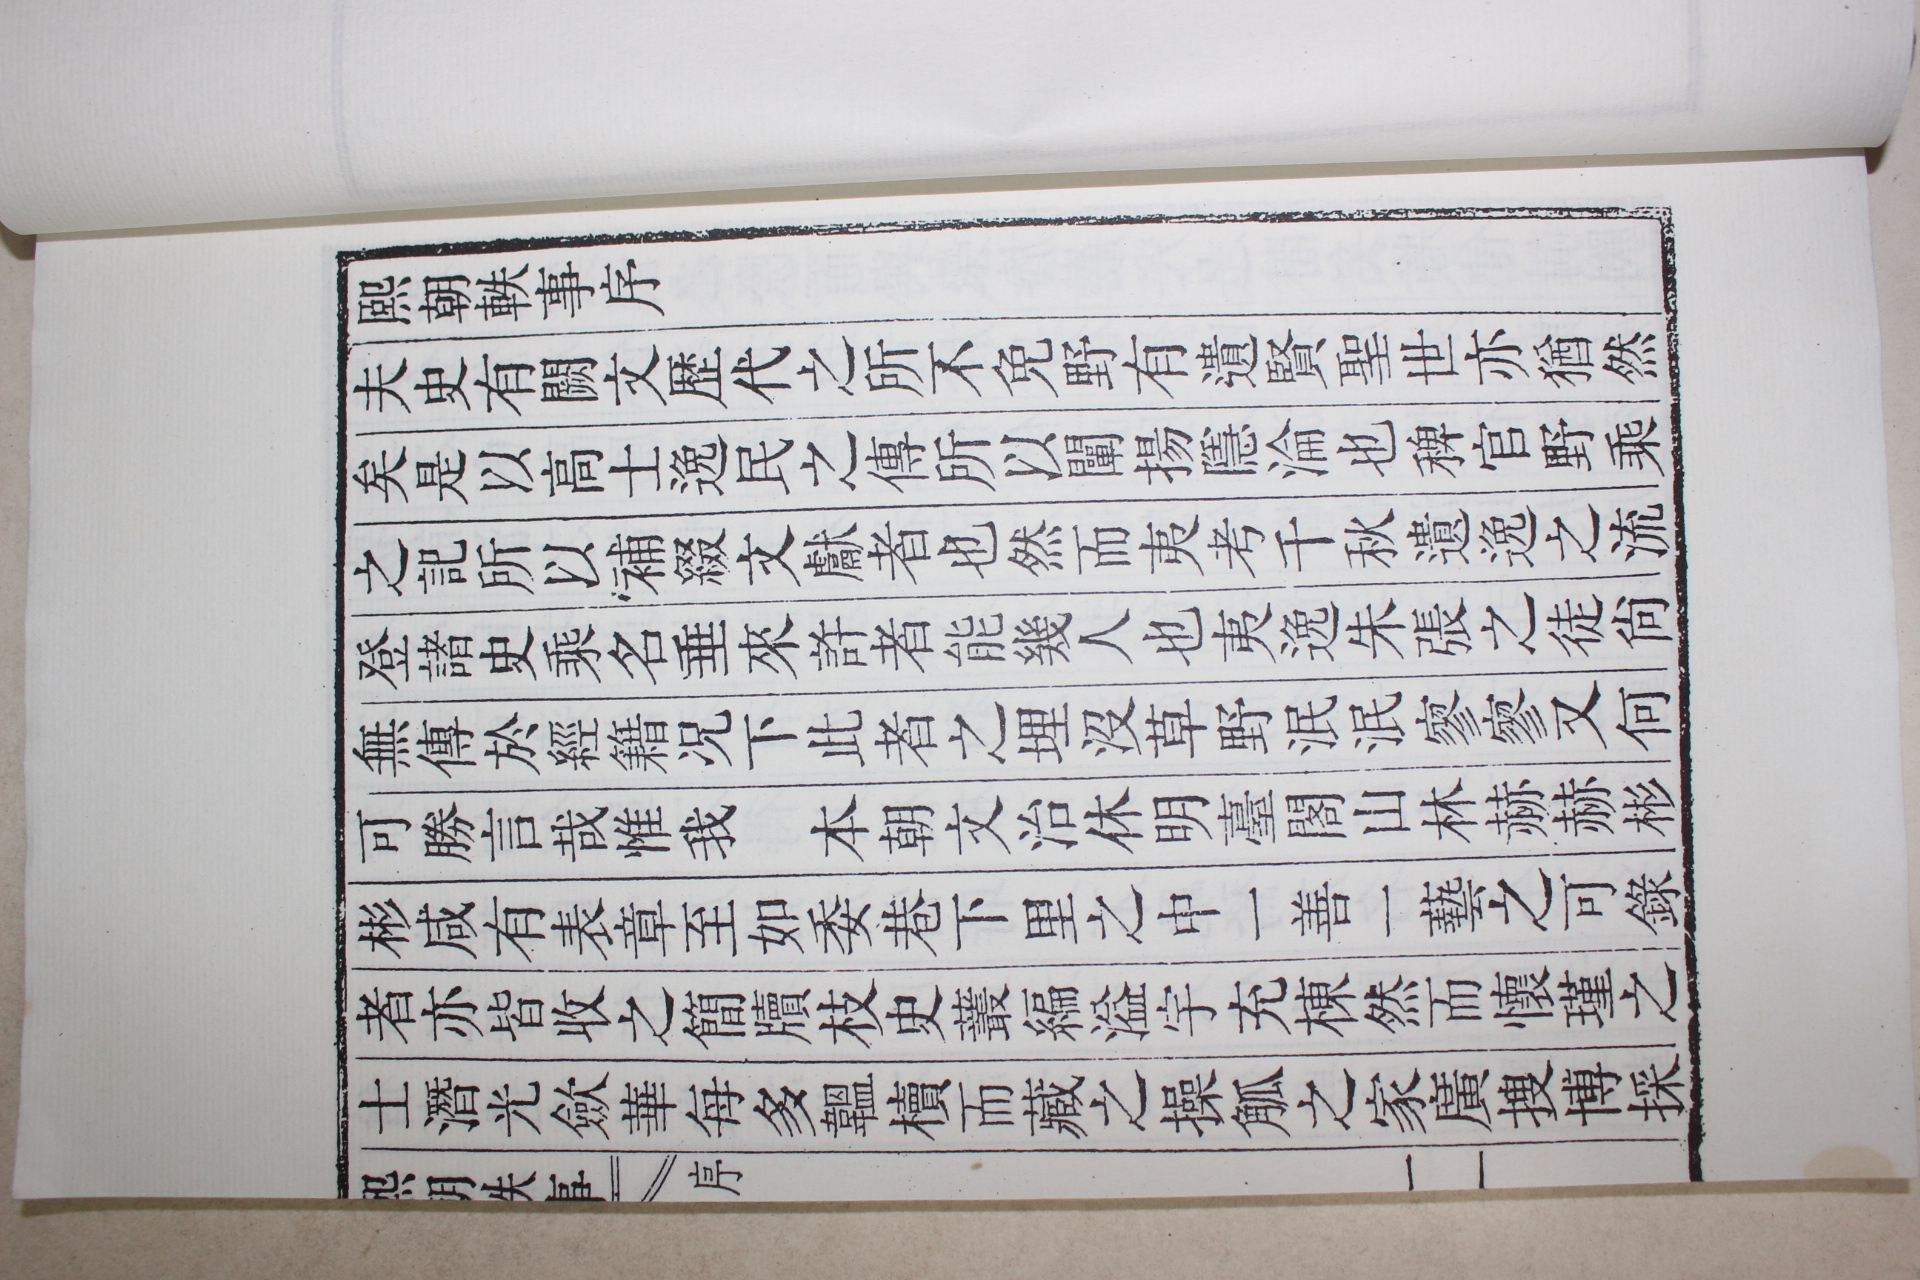 熙朝軼事序
夫史有闕文歷代之所不免野有遺賢聖世亦猶然
矣是以高士逸民之傳所以闡揚隱淪也稗官野乘
之記所以補綴文獻者也然而夷考千秋遺逸之流
登諸史乘名垂來許者能幾人也夷逸朱張之徒尙
無傳於經籍况下此者之埋沒草野泯泯寥寥又何
可勝言哉惟我　本朝文治休明臺閣山林赫赫彬
彬咸有表章至如委巷下里之中一善一藝之可錄
者亦皆收之簡牘枝史叢編溢宇充棟然而懷瑾之
士潛光斂華每多韞櫝而藏之操觚之家廣搜博採
熙朝軼事　序　一　一